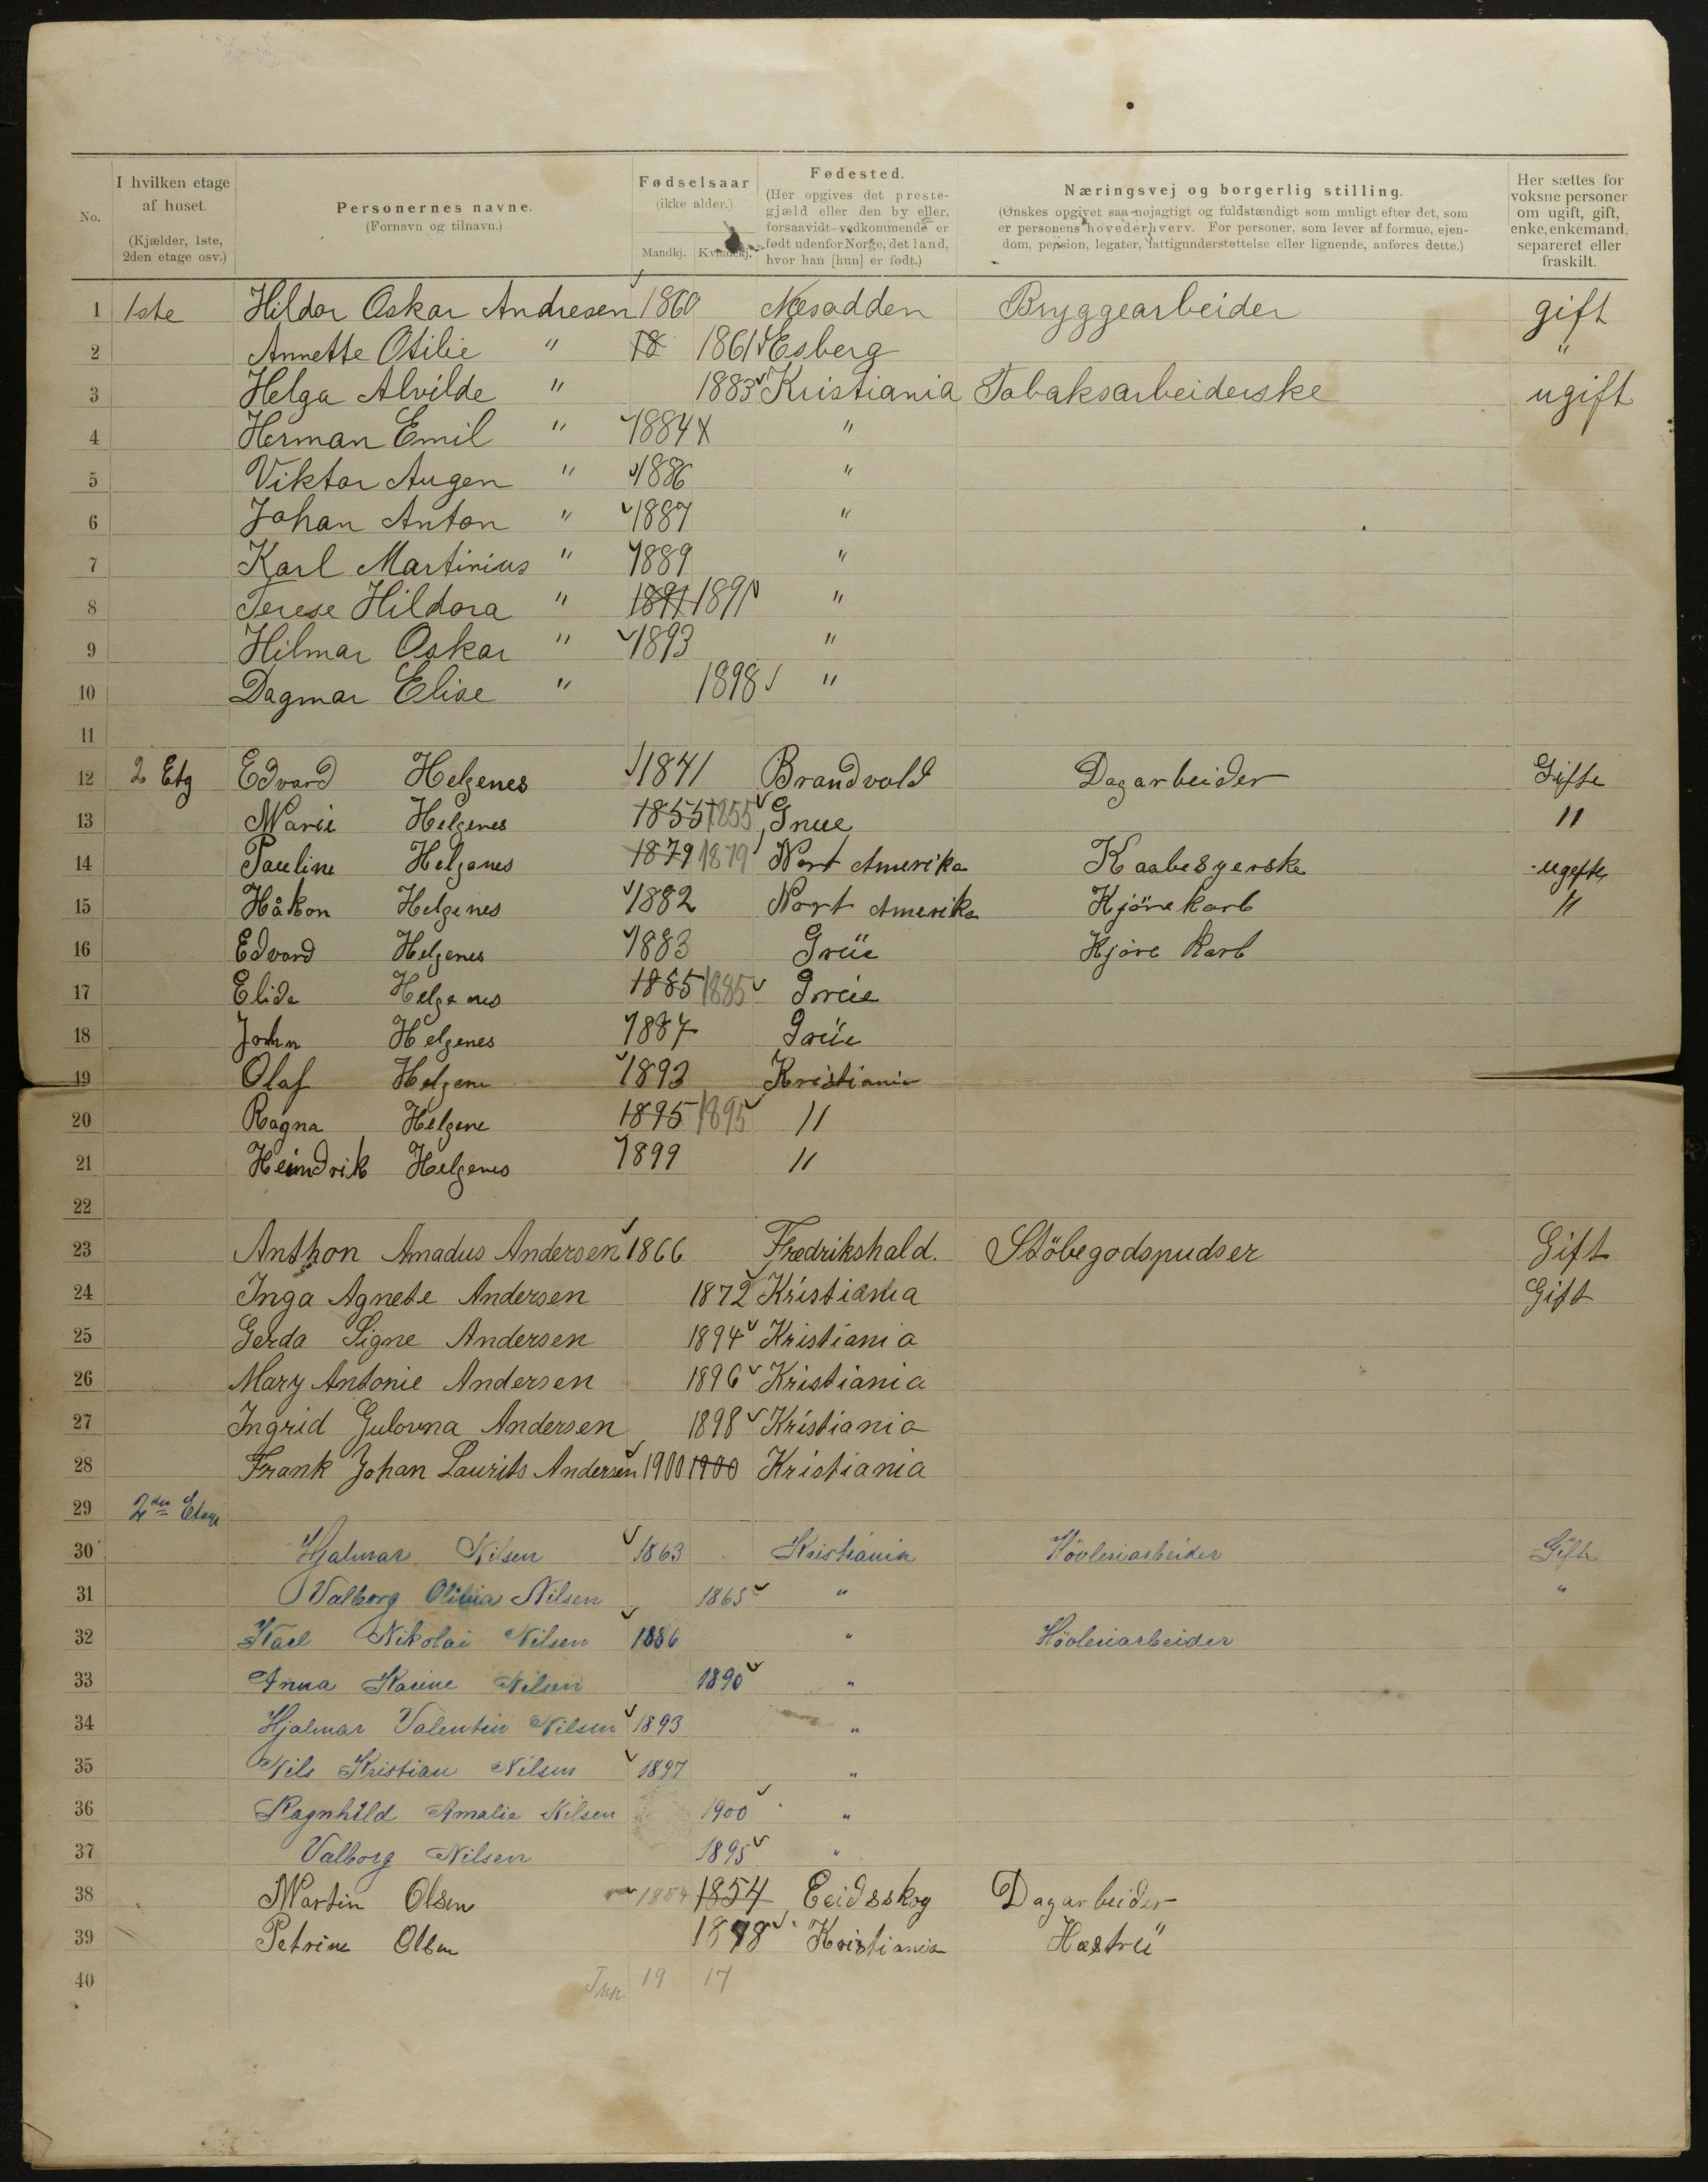 No.
I hvilken etage af huset. (Kjælder, 1ste, 2den etage osv.)
Personernes navne. (Fornavn og tilnavn.)
Fødselsaar (ikke alder.) Mandkj. Kvindekj.
Fødested. (Her opgives det prestegjæld eller den by eller, forsaavidt vedkommende er født udenfor Norge, det land, hvor han [hun] er født.)
Næringsvej og borgerlig stilling. (Ønskes opgivet saa nøjagtigt og fuldstændigt som muligt efter det, som er personens hovederhverv. For personer, som lever af formue, ejendom, pension, legater, fattigunderstøttelse eller lignende, anføres dette.)
Her sættes for voksne personer om ugift, gift, enke, enkemand, separeret eller fraskilt.
1 1ste Hildor Oskar Andresen 1860 Nesodden Bryggearbeider gift
2 Annette Otilie " 18 1861 Esberg "
3 Helga Alvilde " 1883 Kristiania Tobaksarbeiderske ugift
4 Herman Emil " 1884 X "
5 Viktor Augen " 1886 "
6 Johan Anton " 1887 "
7 Karl Martinius " 1889 "
8 Terese Hildora " 1891 1891 "
9 Hilmar Oskar " 1893 "
10 Dagmar Elise " 1898 "
11
12 2 Etg Edvard Helgenes 1841 Brandvold Dagarbeider Gifte
13 Marie Helgenes 1855 1855 Grue "
14 Pauline Helgenes 1879 1879 Nort Amerika Kaabesyerske ugifte
15 Håkon Helgenes 1882 Nort Amerika Kjörekarl "
16 Edvard Helgenes 1883 Grüe Kjöre karl
17 Elida Helgenes 1885 1885 Grüe
18 John Helgenes 1887 Grüe
19 Olaf Helgene 1893 Kristiania
20 Ragna Helgene 1895 1895 "
21 Heindrik Helgenes 1899 "
22
23 Anthon Amadus Andersen 1866 Fredrikshald. Stöbegodspudser Gift
24 Inga Agnete Andersen 1872 Kristiania Gift
25 Gerda Signe Andersen 1894 Kristiania
26 Mary Antonie Andersen 1896 Kristiania
27 Ingrid Gulovna Andersen 1898 Kristiania
28 Frank Johan Laurits Andersen 1900 1900 Kristiania
29 2den Etage
30 Hjalmar Nilsen 1863 Kristiania Hövleriarbeider Gift
31 Valborg Olivia Nilsen 1865 " "
32 Karl Nikolai Nilsen 1886 " Hövleriarbeider
33 Anna Karine Nilsen 1890 "
34 Hjalmar Valentin Nilsen 1893 "
35 Nils Kristian Nilsen 1897 "
36 Ragnhild Amalie Nilsen 1900 "
37 Valborg Nilsen 1895 "
38 Martin Olsen 1854 1854 Eeidsskog Dagarbeider
39 Petrine Olsen 1878 Kristiania Hüstrü
40 19 17